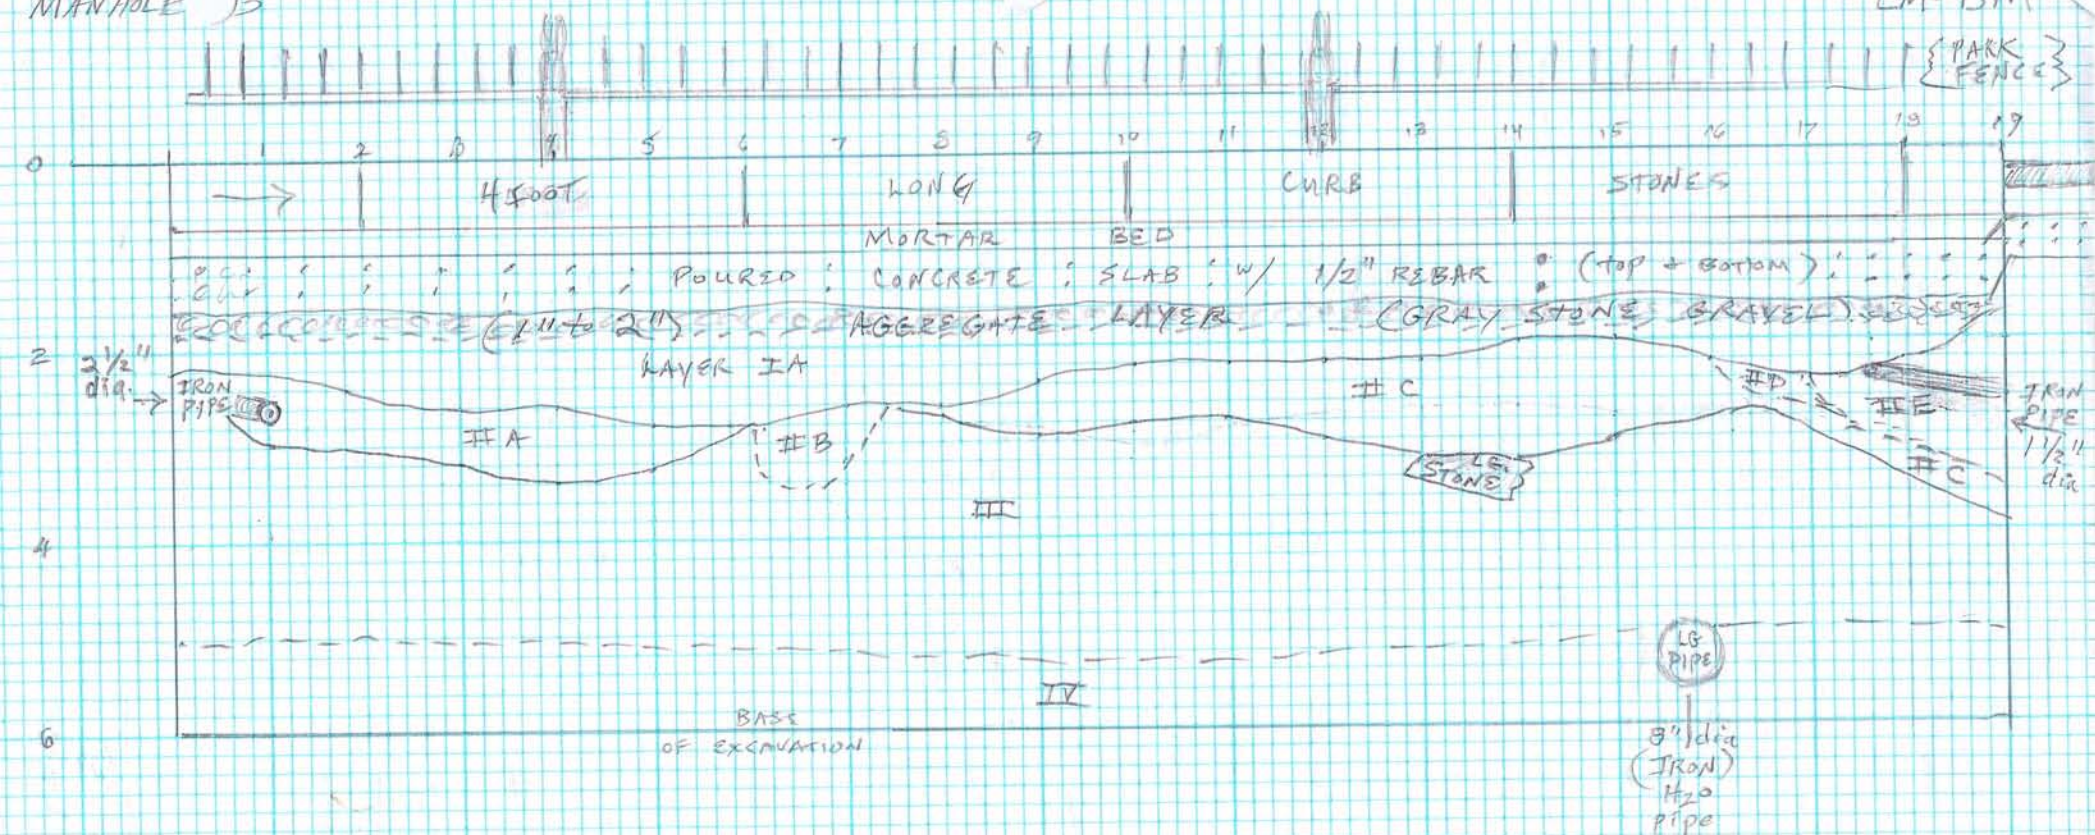 MANHOLE 13
{PARK
FENCE}
1 2 3 4 5 6 7 8 9 10 11 12 13 14 15 16 17 18 19
0
→ 4 FOOT LONG CURB STONES
MORTAR BED
POURED CONCRETE SLAB w/ 1/2" REBAR (top + BOTTOM)
(1" to 2") AGGREGATE LAYER (GRAY STONE GRAVEL)
2
2 1/2"
dia.
→
IRON
PIPE
LAYER IA
II A
II B
II C
II D
II E
II C
IRON
PIPE
1 1/2"
dia
LG.
STONE
III
4
LG
PIPE
IV
6
BASE
OF EXCAVATION
8" dia
(IRON)
H2O
pipe